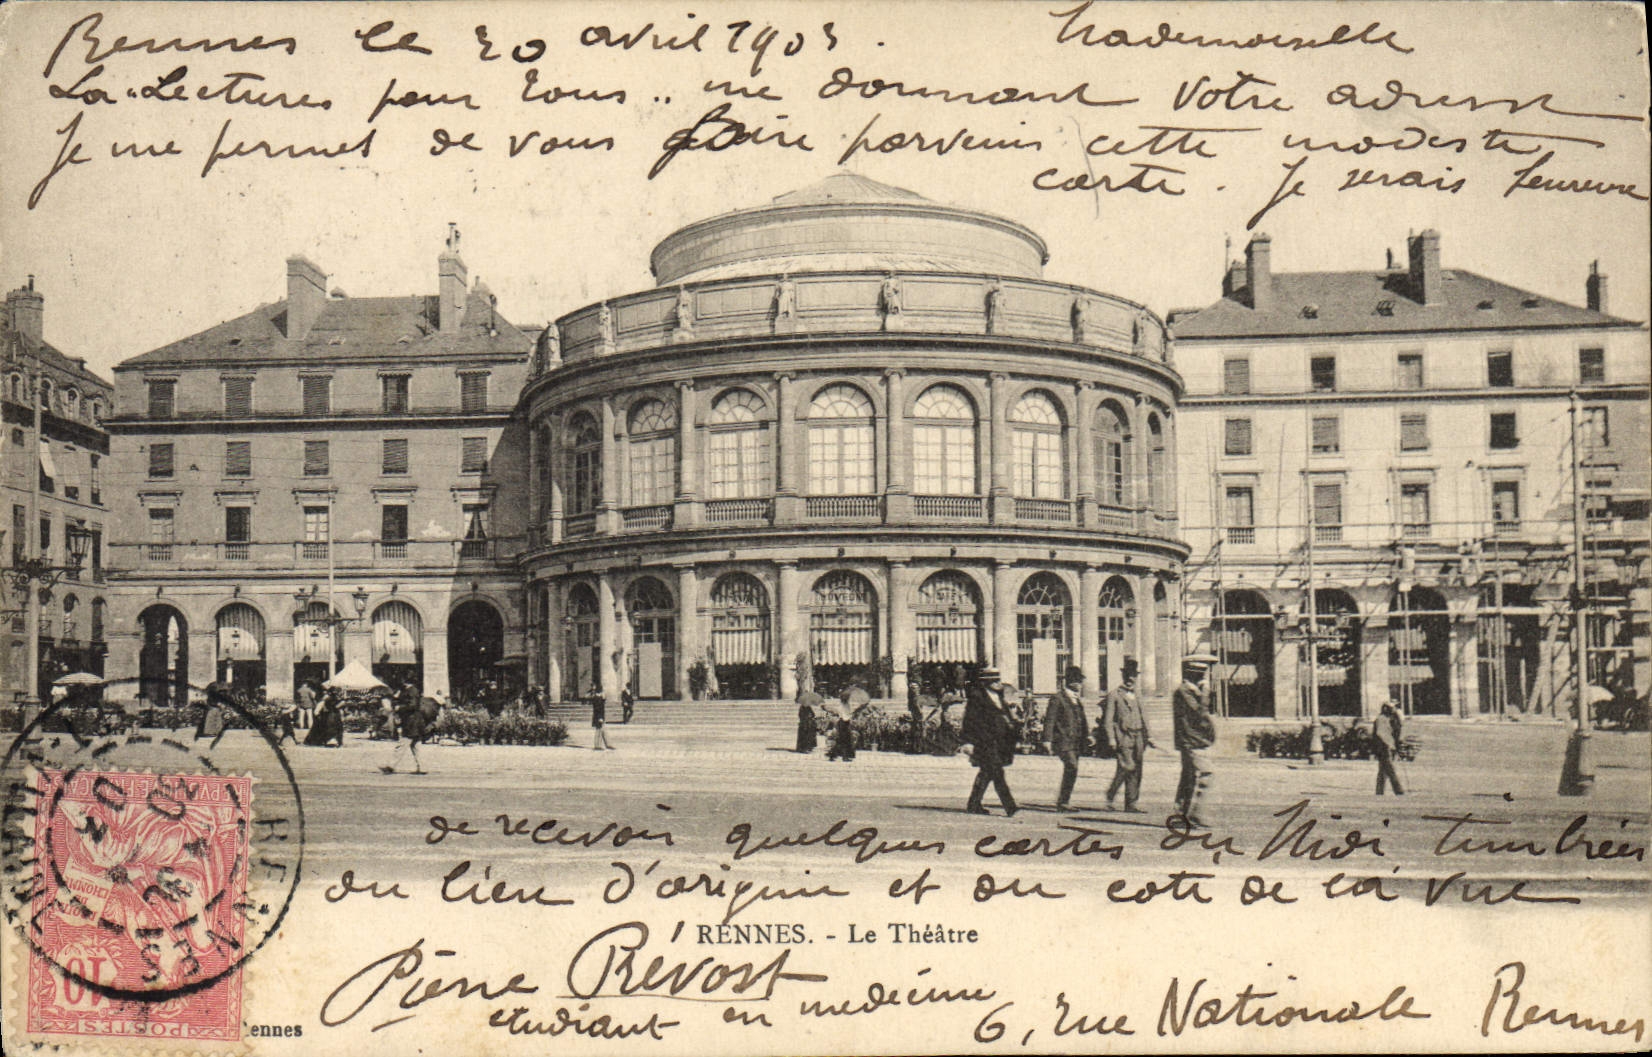 Rennes le 20 avril 1903. Mademoiselle
La "Lectures pour Tous" me donnant votre adresse
Je me permet de vous faire parvenir cette modeste
carte. Je serais heureux
de recevoir quelques cartes du Midi, timbrées
au lieu d'origine et du coté de la vue
RENNES. - Le Théâtre
Pierre Prévost
étudiant en medecine
6, rue Nationale Rennes
10
POSTES
ennes